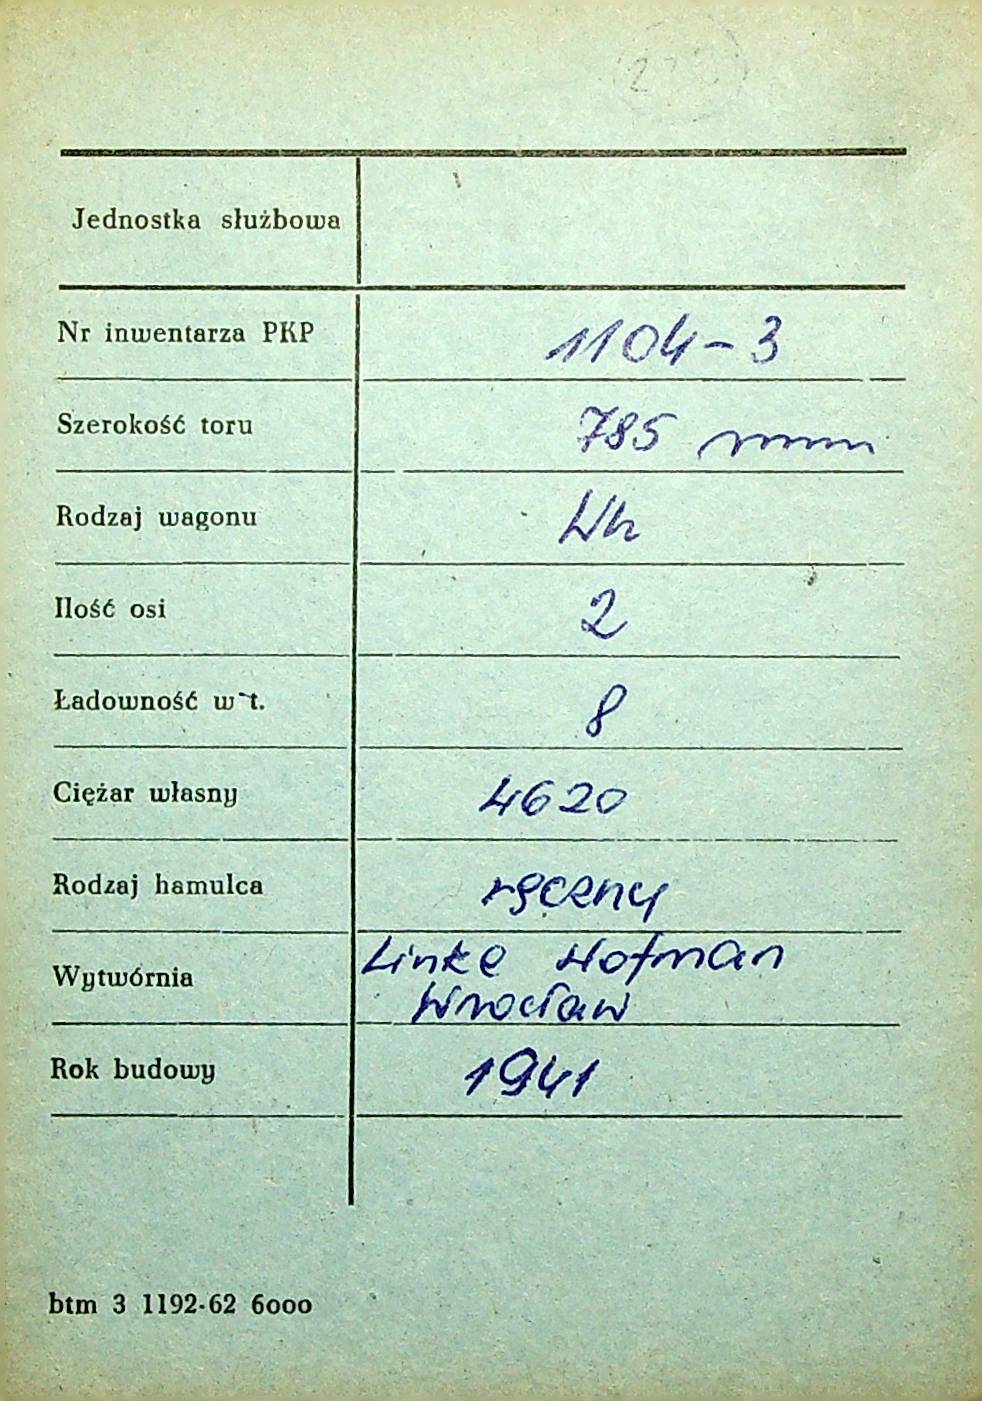 Jednostka służbowa
Nr inwentarza PKP 1104-3
Szerokość toru 785 mm
Rodzaj wagonu Wh
Ilość osi 2
Ładowność w t. 8
Ciężar własny 4620
Rodzaj hamulca ręczny
Wytwórnia Linke Hofman
Wrocław
Rok budowy 1941
btm 3 1192-62 6000